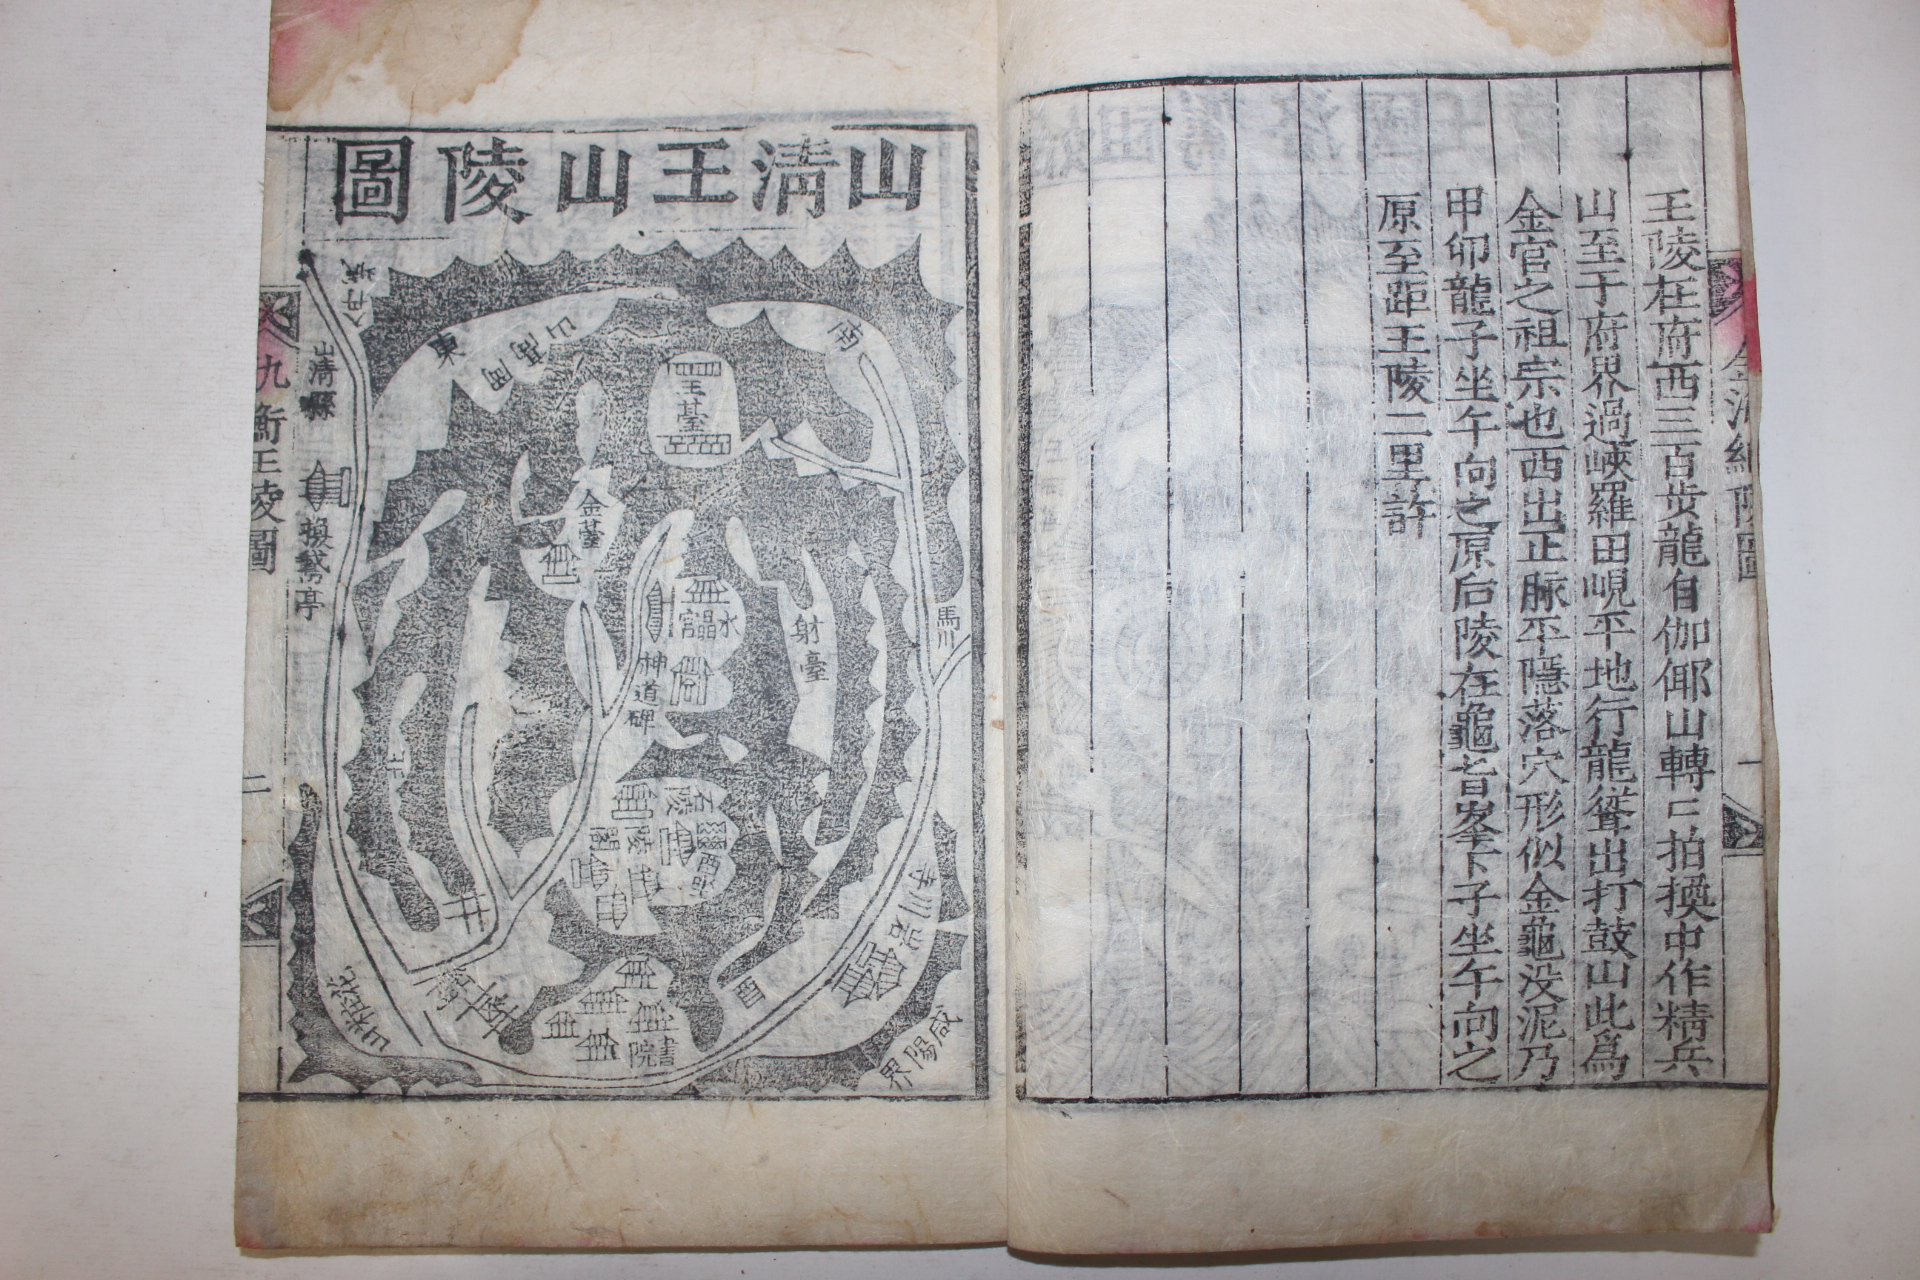 王陵在府西三百步龍自伽倻山轉已拍換中作精兵
山至于府界過峽羅田峴平地行龍聳出打鼓山此爲
金官之祖宗也西出正脉平隱落穴形似金龜没泥乃
甲卯龍子坐午向之原后陵在龜旨峯下子坐午向之
原至距王陵二里許
山淸王山陵圖
南
馬川
咸陽界
王臺
水晶宮
射臺
西
金臺
神道碑
書院
東
北
山淸縣
換鵝亭
九衡王陵圖
二